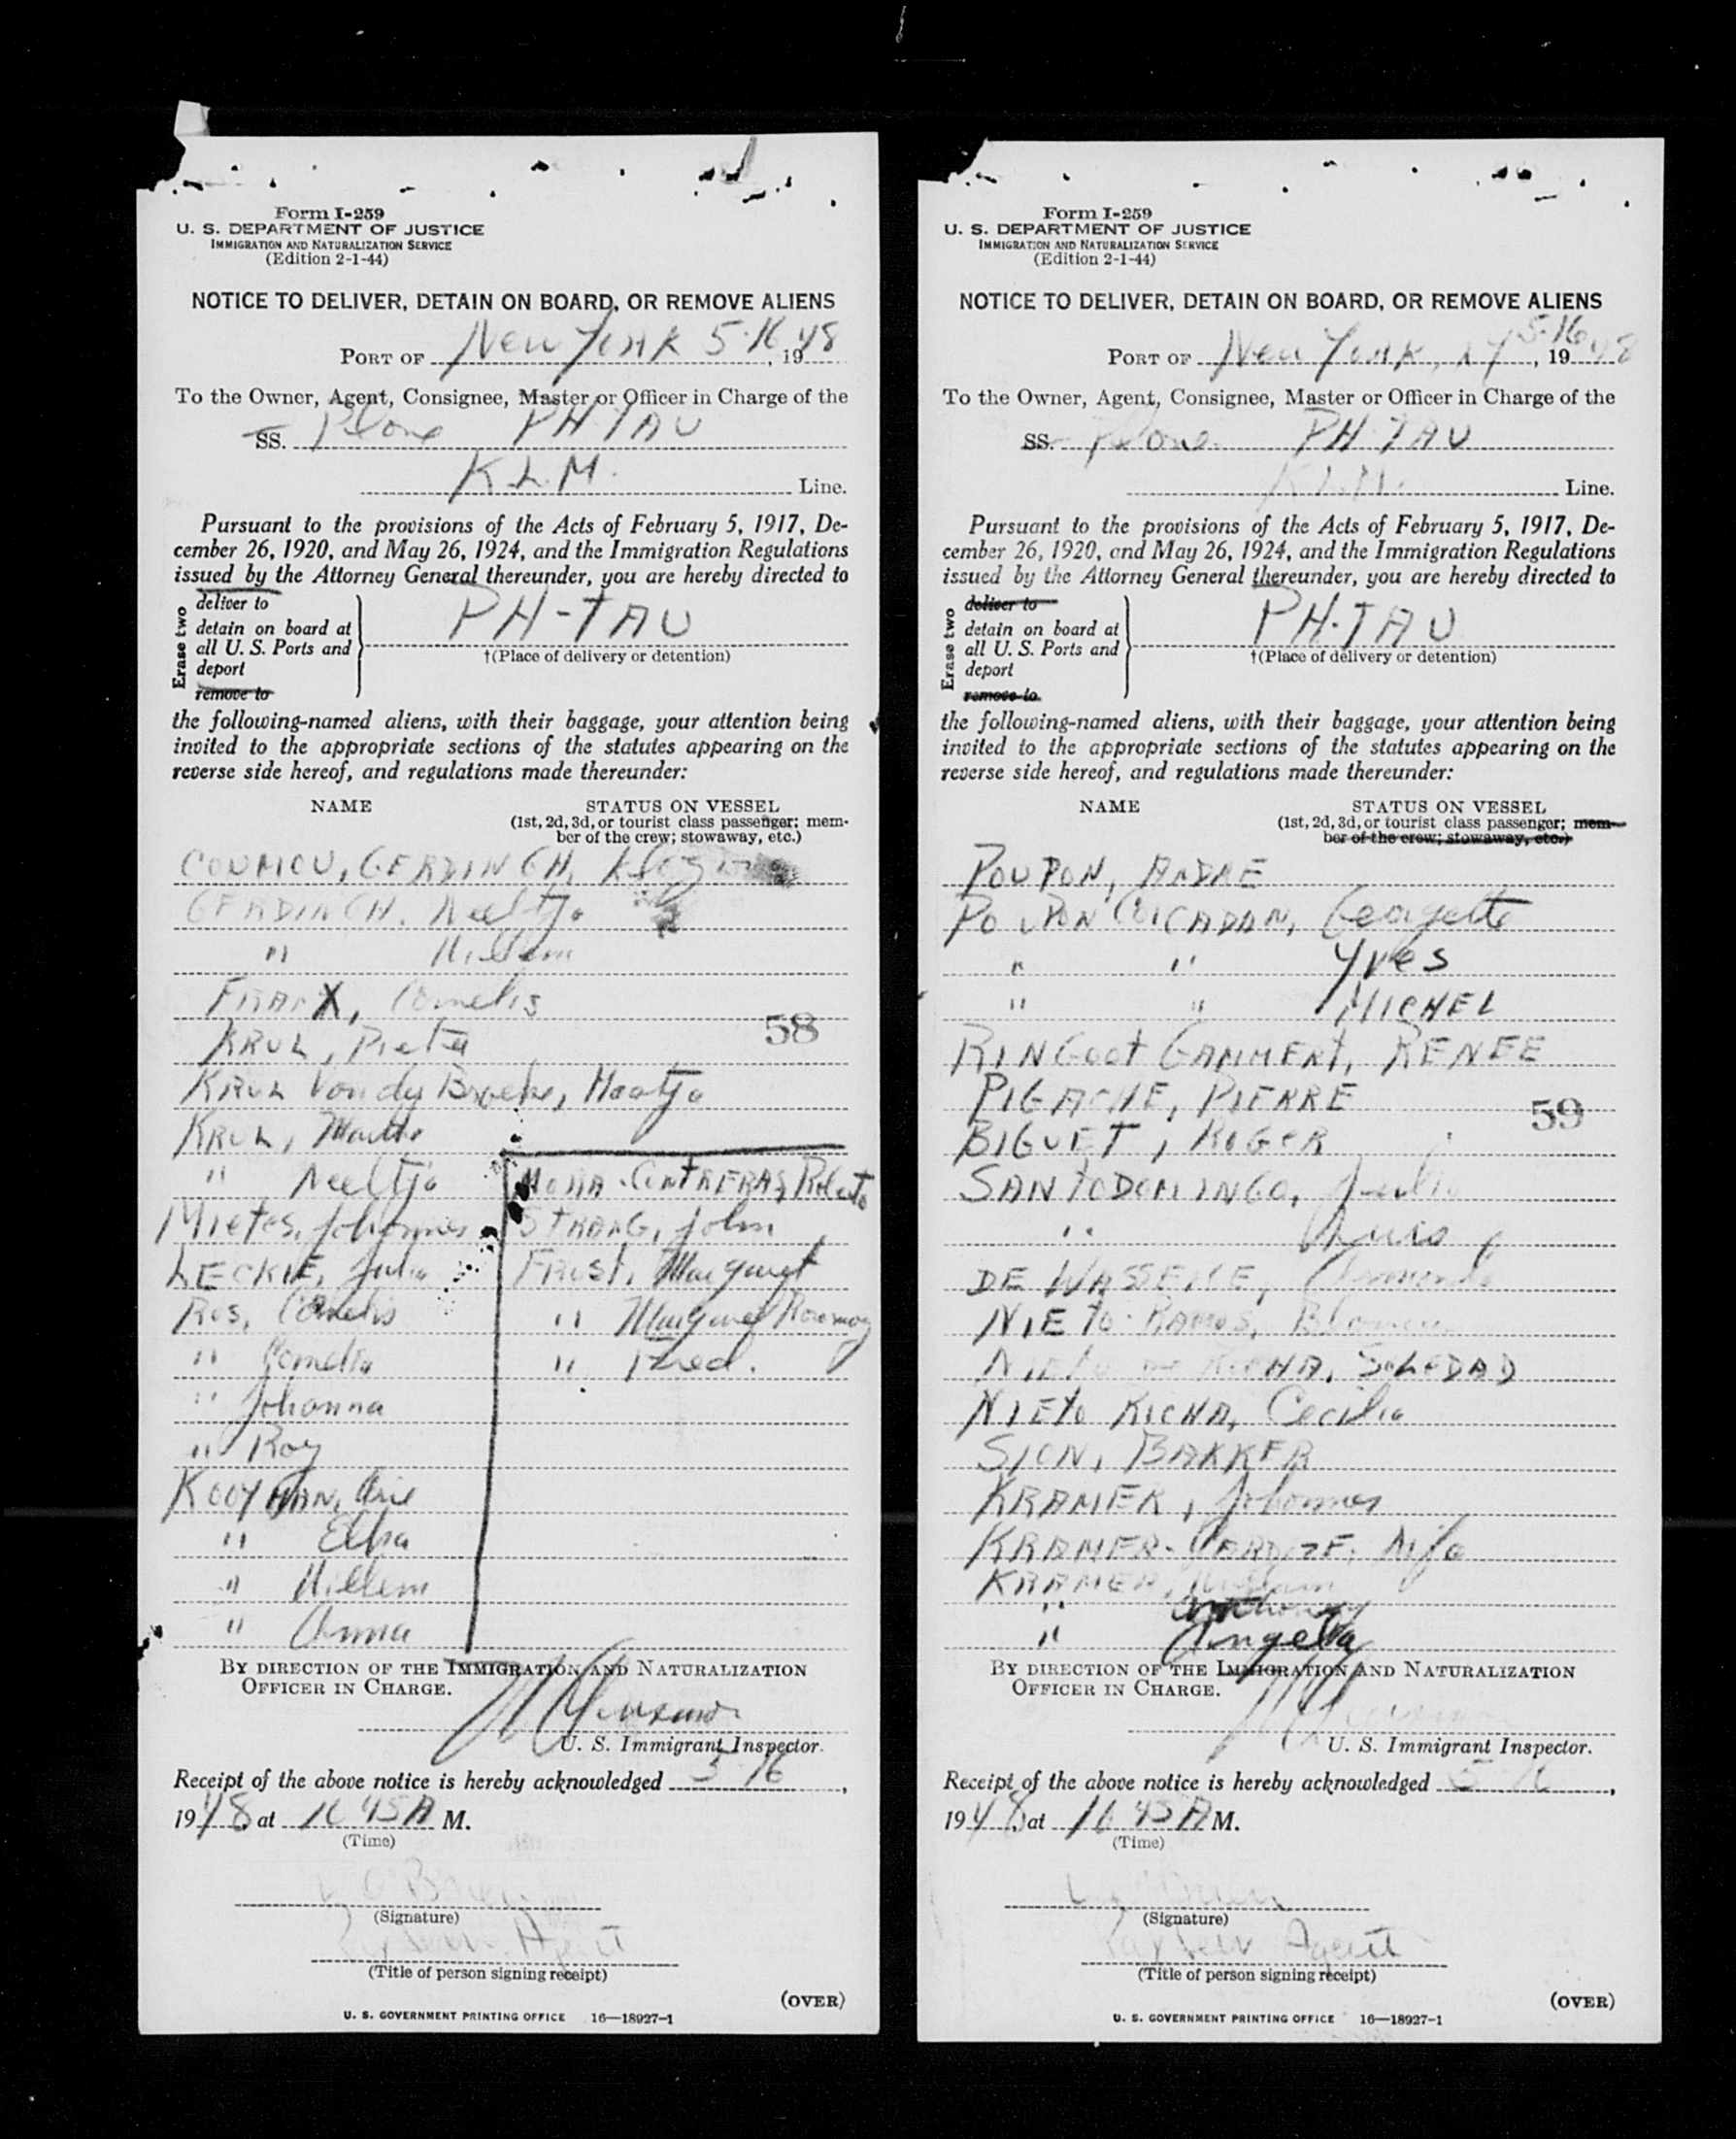 Form I-259
U. S. DEPARTMENT OF JUSTICE
IMMIGRATION AND NATURALIZATION SERVICE
(Edition 2-1-44)
NOTICE TO DELIVER, DETAIN ON BOARD, OR REMOVE ALIENS
PORT OF New York 5-16, 1948
To the Owner, Agent, Consignee, Master or Officer in Charge of the
SS. Plane PH TAU
K.L.M. Line.
Pursuant to the provisions of the Acts of February 5, 1917, De-
cember 26, 1920, and May 26, 1924, and the Immigration Regulations
issued by the Attorney General thereunder, you are hereby directed to
Erase two
deliver to
detain on board at
all U. S. Ports and
deport
remove to
PH-TAU
†(Place of delivery or detention)
the following-named aliens, with their baggage, your attention being
invited to the appropriate sections of the statutes appearing on the
reverse side hereof, and regulations made thereunder:
NAME
STATUS ON VESSEL
(1st, 2d, 3d, or tourist class passenger; mem-
ber of the crew; stowaway, etc.)
COUMOU, GERDINGH,
GERDINGH. Neeltja
" Willem
FRANX, Cornelis
58
KRUL, Pieter
KRUL Van dy Broeke, Maatja
KRUL,
" Neeltja
Mietes, Johannes
LECKIE, Julia
Ros, Cornelis
" Cornelia
" Johanna
" Roy
KOOYMAN, Arie
" Elba
" Willem
" Anna
MORA-CONTRERAS, Roberto
STRANG, John
FROST, Margaret
" Margaret Rosemary
" Fred.
BY DIRECTION OF THE IMMIGRATION AND NATURALIZATION
OFFICER IN CHARGE.
U. S. Immigrant Inspector.
Receipt of the above notice is hereby acknowledged 5-16,
1948, at 10 45 A M.
(Time)
(Signature)
Agent
(Title of person signing receipt)
(OVER)
U. S. GOVERNMENT PRINTING OFFICE 16—18927-1
Form I-259
U. S. DEPARTMENT OF JUSTICE
IMMIGRATION AND NATURALIZATION SERVICE
(Edition 2-1-44)
NOTICE TO DELIVER, DETAIN ON BOARD, OR REMOVE ALIENS
PORT OF New York, NY 5-16, 1948
To the Owner, Agent, Consignee, Master or Officer in Charge of the
SS. Plane PH-TAU
K.L.M. Line.
Pursuant to the provisions of the Acts of February 5, 1917, De-
cember 26, 1920, and May 26, 1924, and the Immigration Regulations
issued by the Attorney General thereunder, you are hereby directed to
Erase two
deliver to
detain on board at
all U. S. Ports and
deport
remove to
PH-TAU
†(Place of delivery or detention)
the following-named aliens, with their baggage, your attention being
invited to the appropriate sections of the statutes appearing on the
reverse side hereof, and regulations made thereunder:
NAME
STATUS ON VESSEL
(1st, 2d, 3d, or tourist class passenger; mem-
ber of the crew; stowaway, etc.)
POUPON, ANDRE
POUPON COICADAN, Georgette
" " Yves
" " MICHEL
RINGOOT GAMMERT, RENEE
PIGACHE, PIERRE
59
BIGUET, ROGER
SANTODOMINGO, Julio
"
DE WASSEIGE,
NIETO-RAMOS,
NIETO KICHA, SOLEDAD
NIETO KICHA, Cecilia
SION, BAKKER
KRAMER, Johannes
KRAMER-
KRAMER, William
" Anthony
" Angella
BY DIRECTION OF THE IMMIGRATION AND NATURALIZATION
OFFICER IN CHARGE.
U. S. Immigrant Inspector.
Receipt of the above notice is hereby acknowledged 5-16,
1948, at 10 45 A M.
(Time)
(Signature)
Agent
(Title of person signing receipt)
(OVER)
U. S. GOVERNMENT PRINTING OFFICE 16—18927-1